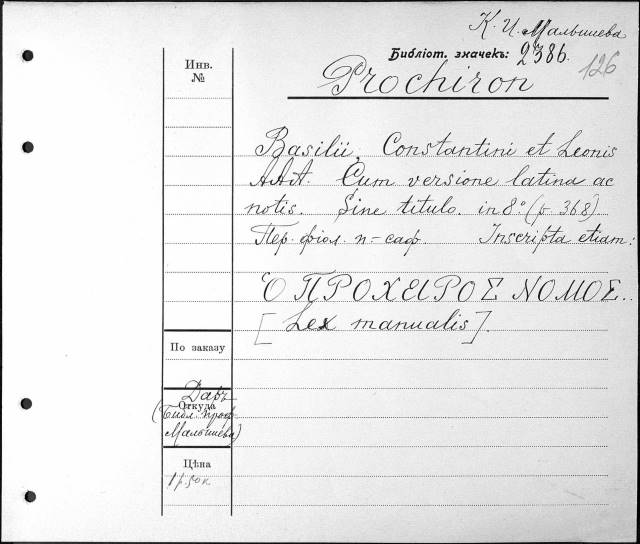 К. И. Малышева
Библіот. значекъ: 2386.
126
Prochiron
Инв.
№
Basilii, Constantini et Leonis
AAA. Cum versione latina ac
notis. Sine titulo. in 8° (p. 368)
Пер. фіол. п-саф. Inscripta etiam:
Ὁ ΠΡΟΧΕΙΡΟΣ ΝΟΜΟΣ..
[Lex manualis].
По заказу
Даръ
Откуда
(Библ. проф.
Малышева)
Цѣна
1 р. 50 к